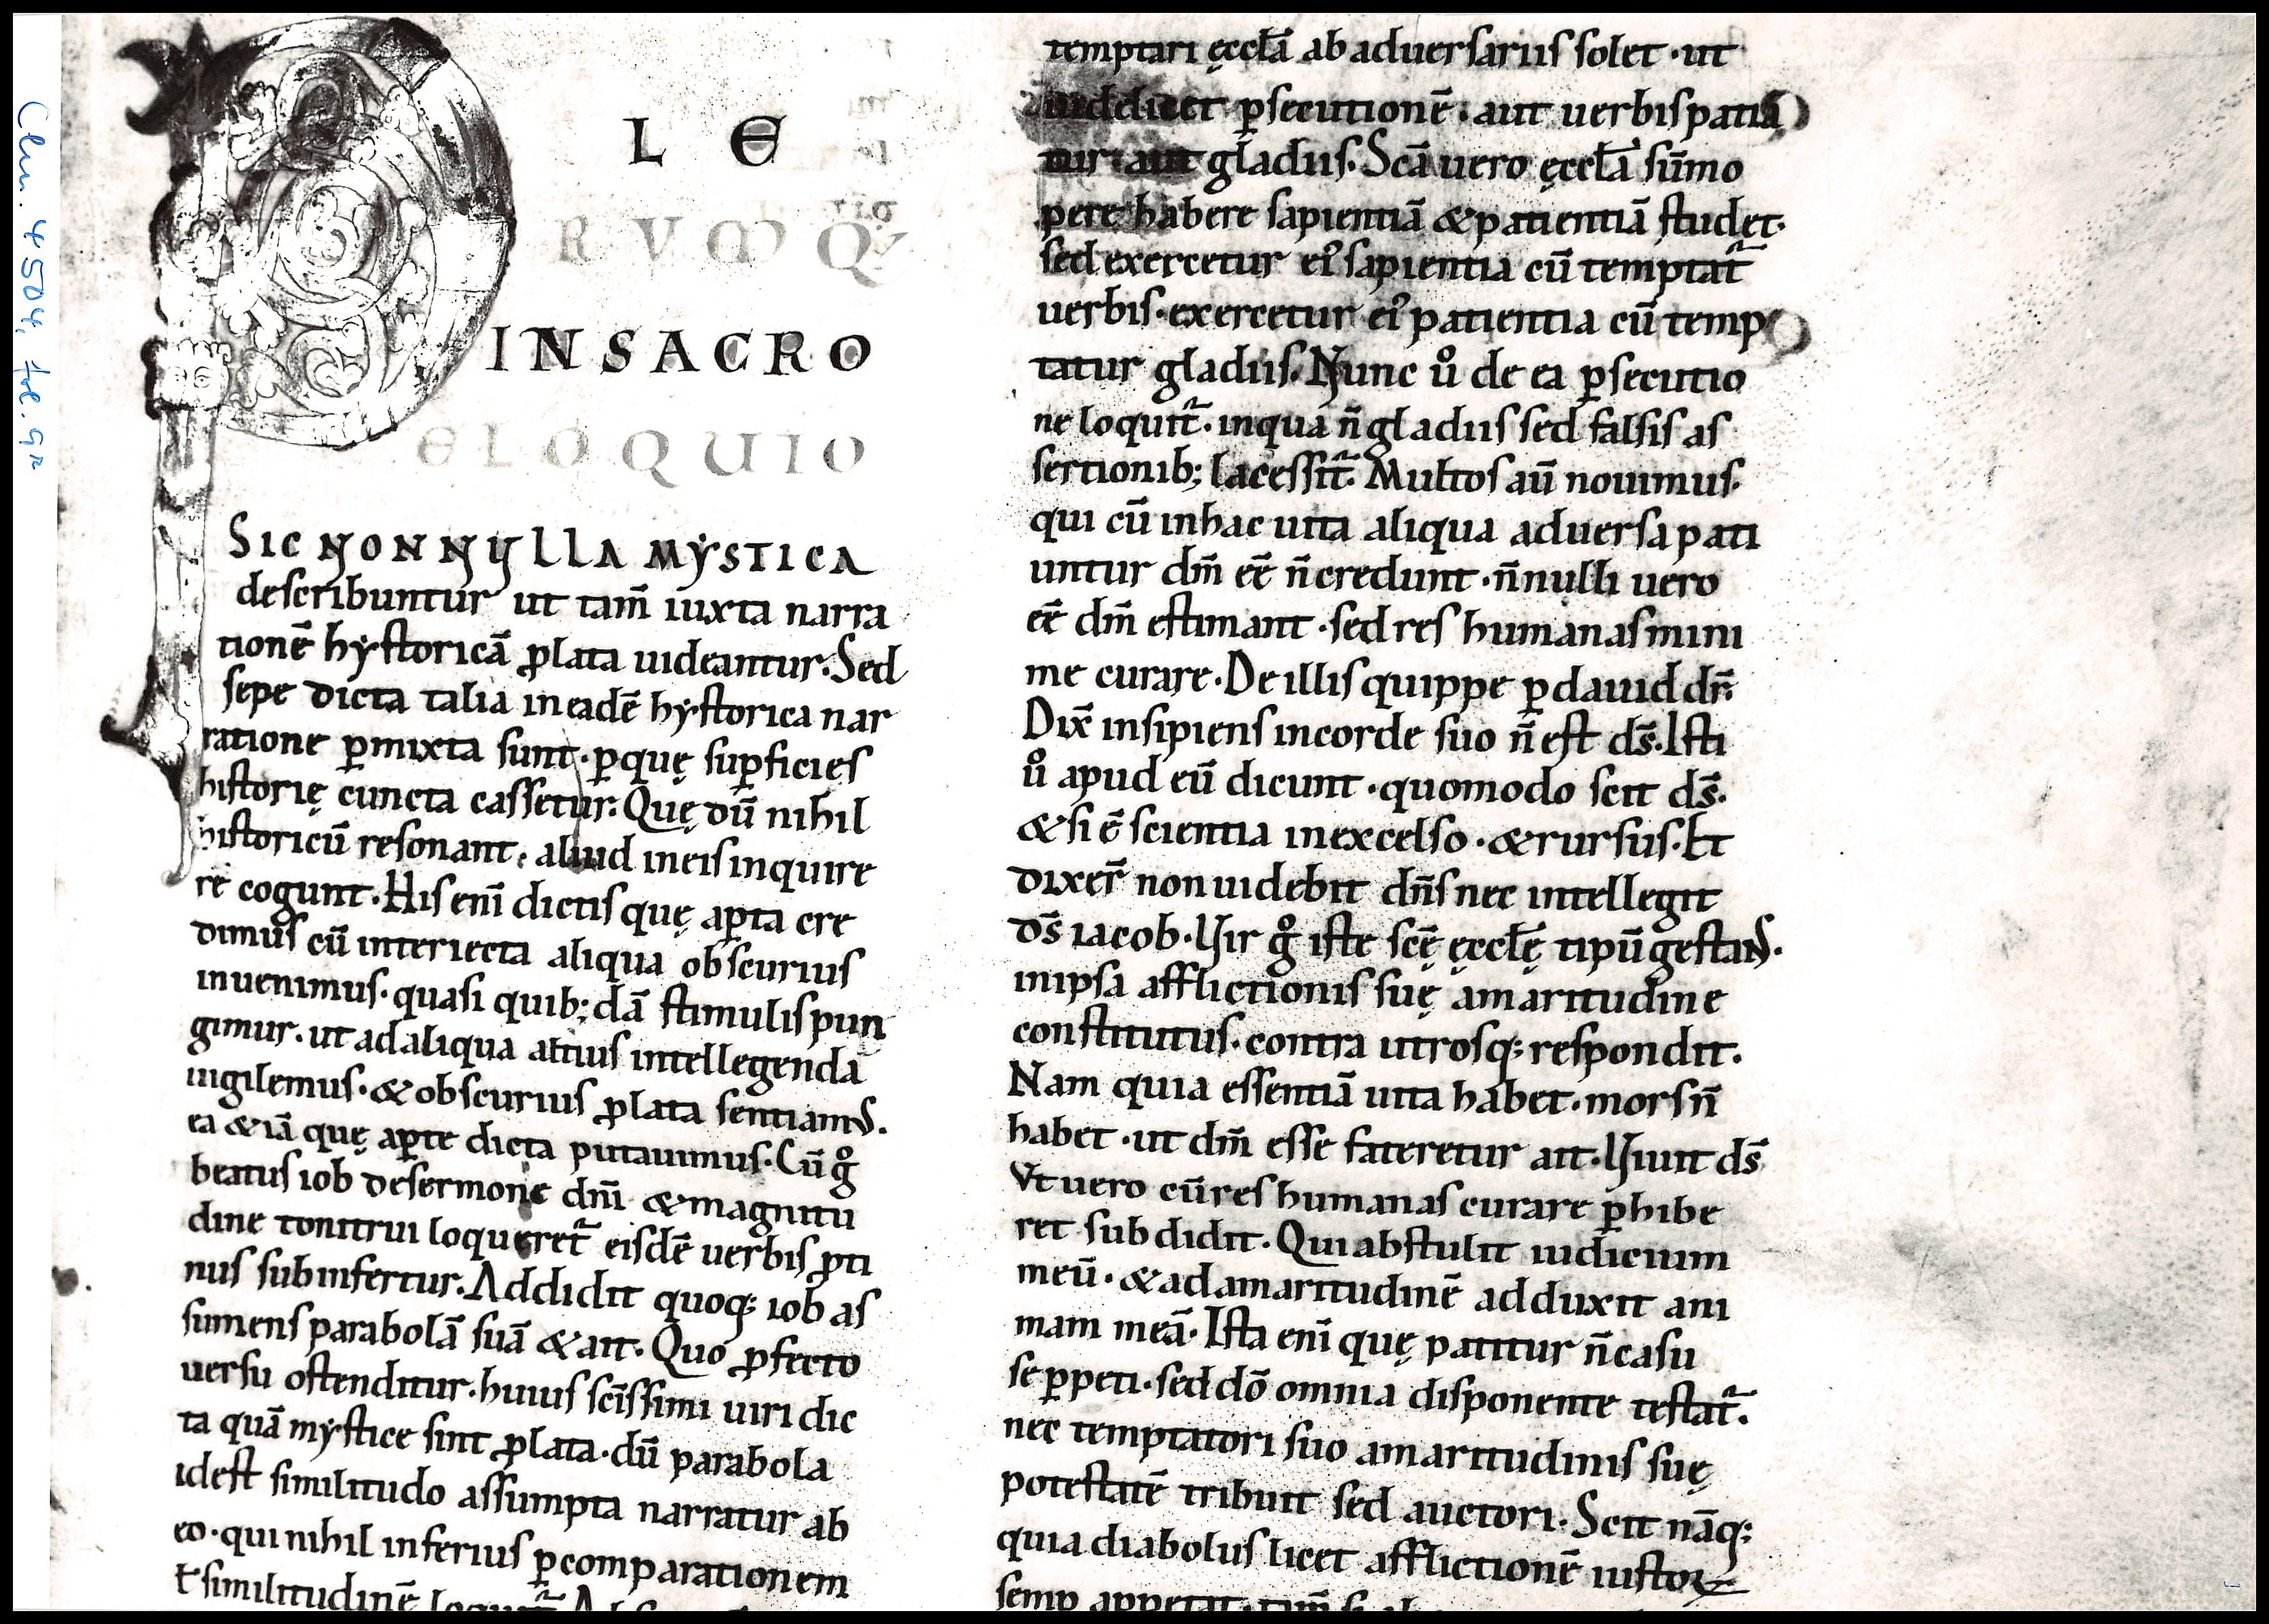 Clm. 4 4504, fol. 9r
P LE
RVMQ;
IN SACRO
ELOQUIO
SIC NONNVLLA MYSTICA
describuntur ut tam̄ iuxta narra
tionē hystoricā ꝓlata uideantur. Sed
sepe dicta talia in eadē hystorica nar
ratione ꝑmixta sunt. ꝑ quę suꝑficies
historię cuncta cassetur. Quę dū nihil
historicū resonant. aliud in eis inquire
re cogunt. His enī dictis quę aꝑta cre
dimus cū interiecta aliqua obscurius
inuenimus. quasi quib; dā stimulis pun
gimur. ut ad aliqua altius intellegenda
uigilemus. & obscurius ꝓlata sentiamꝰ.
ea & iā quę aꝑte dicta putauimus. Cū gͦ
beatus iob de sermone dn̄i & magnitu
dine tonitrui loqueret᷑ eisdē uerbis ꝓti
nus subinfertur. Addidit quoq; iob as
sumens parabolā suā & ait. Quo ꝓfecto
uersu ostenditur. huius sc̄issimi uiri dic
ta quā mystice sint ꝓlata. dū parabola
idest similitudo assumpta narratur ab
eo. qui nihil inferius ꝑ comparationem
ł similitudinē
temptari ęccl̄a ab aduersariis solet. ut
uidelicet ꝑsecutionē. aut uerbis patia
tur. aut gladiis. Sc̄a uero ęccl̄a sūmo
pere habere sapientiā & patientiā studet.
sed exercetur ei᷒ sapientia cū temptat᷑
uerbis. exercetur ei᷒ patientia cū temp
tatur gladiis. Nunc uͦ de ea ꝑsecutio
ne loquit᷑. in qua n̄ gladiis sed falsis as
sertionib; lacessit᷑. Multos aū nouimus.
qui cū in hac uita aliqua aduersa pati
untur dm̄ eē n̄ credunt. n̄nulli uero
eē dm̄ estimant. sed res humanas mini
me curare. De illis quippe ꝑ dauid dr̄.
Dix̄ insipiens in corde suo n̄ est ds̄. Isti
uͦ apud eū dicunt. quomodo scit ds̄.
& si ē scientia in excelso. & rursus. Et
dixer̄ non uidebit dn̄s nec intellegit
ds̄ iacob. Vir gͦ iste sc̄ę ęccl̄ę tipū gestans.
in ipsa afflictionis suę amaritudine
constitutus. contra utrosq; respondit.
Nam quia essentiā uita habet. mors n̄
habet. ut dm̄ esse fateretur ait. Viuit ds̄
Vt uero cū res humanas curare ꝑhibe
ret subdidit. Qui abstulit iudicium
meū. & ad amaritudinē adduxit ani
mam meā. Ista enī quę patitur n̄ casu
se ꝑpeti. sed dō omnia disponente testat᷑.
nec temptatori suo amaritudinis suę
potestatē tribuit sed auctori. Scit nāq;
quia diabolus licet afflictionē iustoꝝ
semꝑ appetat. tam̄ si